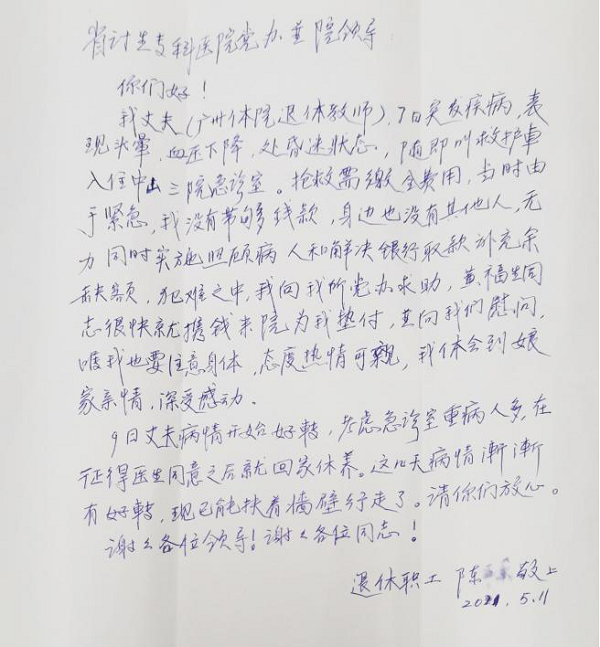 省计生专科医院党办并院领导
你们好！
我丈夫(广州体院退休教师)，7日突发疾病，表
现头晕，血压下降，处昏迷状态，随即叫救护車
入住中山三院急诊室。抢救需缴全费用，当时由
于紧急，我没有带够钱款，身边也没有其他人，无
力同时实施照顾病人和解决银行取款补充余
缺额，犯难之中，我向我所党办求助，黄福生同
志很快就携钱来院为我垫付，并向我们慰问，
嘱我也要注意身体，态度热情可親，我体会到娘
家亲情，深受感动。
9日丈夫病情开始好轉，考虑急诊室重病人多，在
征得医生同意之后就回家休养。这几天病情漸漸
有好轉，现已能扶着墙壁行走了。请你们放心。
谢谢各位领导！谢谢各位同志！
退休职工 陈 敬上
2021.5.11